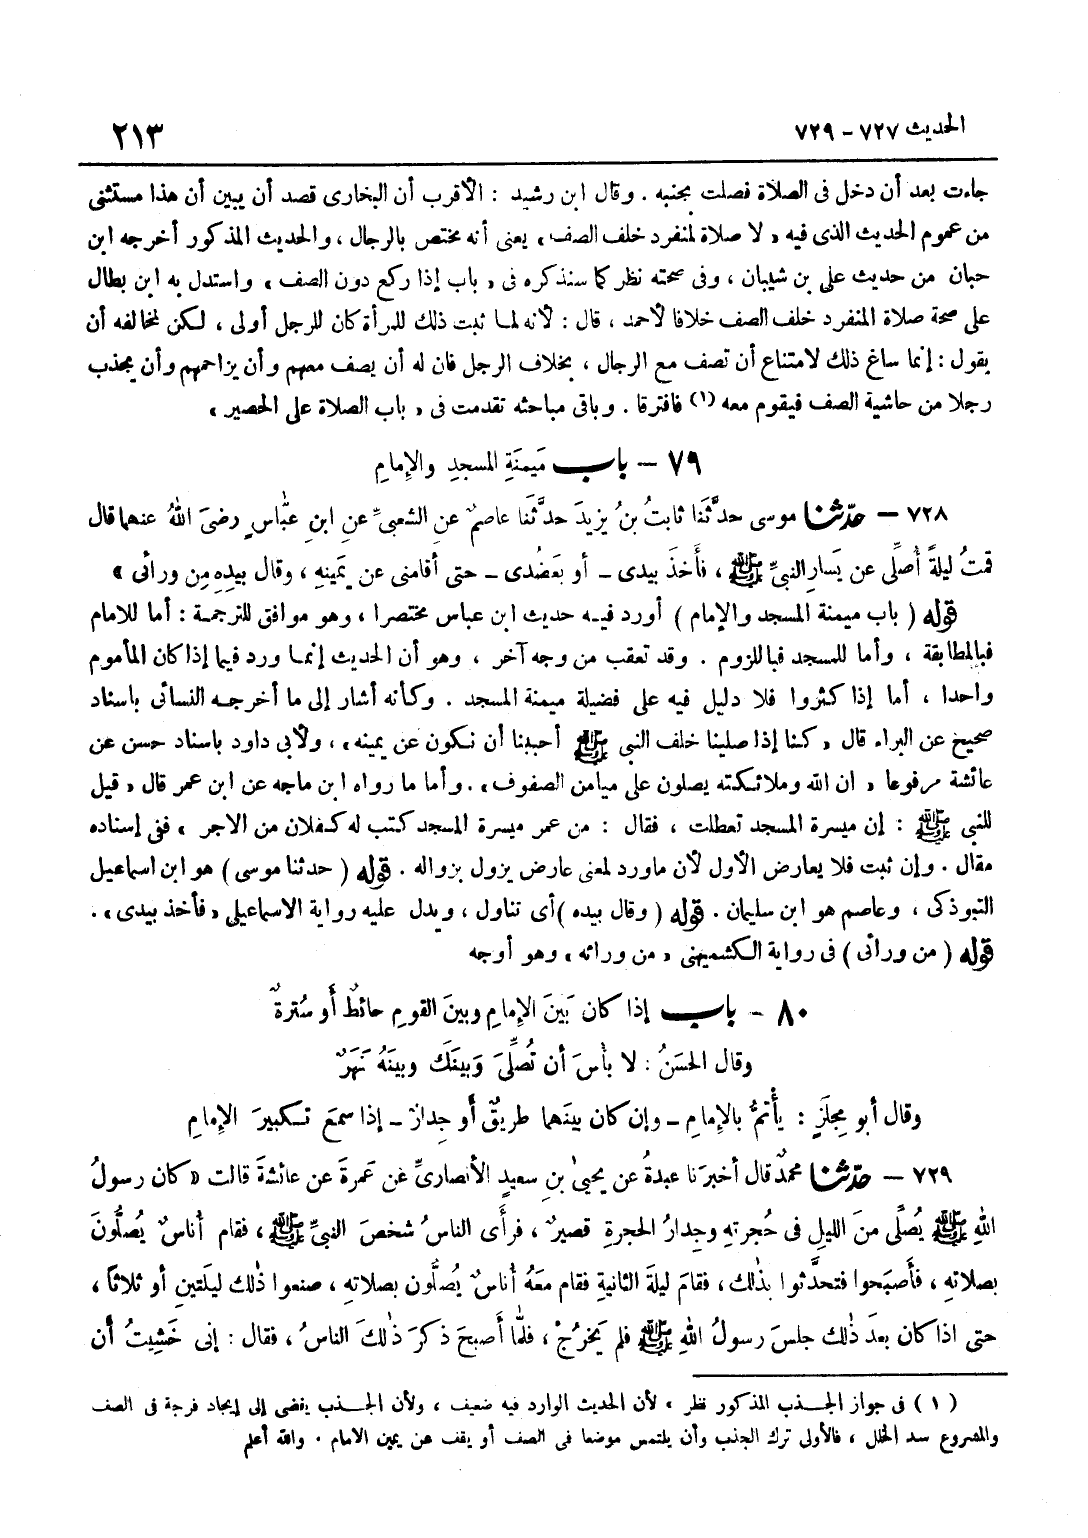 الحديث ٧٢٧ - ٧٢٩
٢١٣
جاءت بعد أن دخل فى الصلاة فصلت بجنبه . وقال ابن رشيد : الأقرب أن البخارى قصد أن يبين أن هذا مستثنى
من عموم الحديث الذى فيه « لا صلاة لمنفرد خلف الصف » يعنى أنه مختص بالرجال ، والحديث المذكور أخرجه ابن
حبان من حديث على بن شيبان ، وفى صحته نظر كما سنذكره فى « باب إذا ركع دون الصف » واستدل به ابن بطال
على صحة صلاة المنفرد خلف الصف خلافا لأحمد ، قال : لأنه لما ثبت ذلك للمرأة كان للرجل أولى ، لكن لمخالفه أن
يقول : إنما ساغ ذلك لامتناع أن تصف مع الرجال ، بخلاف الرجل فان له أن يصف معهم وأن يزاحمهم وأن يجذب
رجلا من حاشية الصف فيقوم معه (١) فافترقا . وباقى مباحثه تقدمت فى « باب الصلاة على الحصير »
٧٩ - باب مَيمنَةِ المسجدِ والإِمامِ
٧٢٨ - حدّثنا موسى حدَّثَنا ثابتُ بنُ يزيدَ حدَّثَنا عاصمٌ عنِ الشعبىِّ عنِ ابنِ عبّاسٍ رضىَ اللهُ عنهما قال
قمتُ ليلةً أُصلِّى عن يَسارِ النبىِّ ﷺ ، فأَخذَ بيدى - أو بعَضُدى - حتى أقامنى عن يَمينهِ ، وقال بيدِه مِن ورائى »
قوله ( باب ميمنة المسجد والإمام ) أورد فيه حديث ابن عباس مختصرا ، وهو موافق للترجمة : أما للامام
فبالمطابقة ، وأما للمسجد فباللزوم . وقد تعقب من وجه آخر ، وهو أن الحديث إنما ورد فيما إذا كان المأموم
واحدا ، أما إذا كثروا فلا دليل فيه على فضيلة ميمنة المسجد . وكأنه أشار إلى ما أخرجه النسائى باسناد
صحيح عن البراء قال « كنا إذا صلينا خلف النبى ﷺ أحببنا أن نكون عن يمينه » ، ولأبى داود باسناد حسن عن
عائشة مرفوعا « ان الله وملائكته يصلون على ميامن الصفوف » . وأما ما رواه ابن ماجه عن ابن عمر قال « قيل
للنبى ﷺ : إن ميسرة المسجد تعطلت ، فقال : من عمر ميسرة المسجد كتب له كفلان من الاجر » ففى إسناده
مقال . وإن ثبت فلا يعارض الأول لأن ماورد لمعنى عارض يزول بزواله . قوله ( حدثنا موسى ) هو ابن اسماعيل
التبوذكى ، وعاصم هو ابن سليمان . قوله ( وقال بيده ) أى تناول ، ويدل عليه رواية الاسماعيلى « فأخذ بيدى » .
قوله ( من ورائى ) فى رواية الكشميهنى « من ورائه » وهو أوجه
٨٠ - باب إذا كان بَينَ الإِمامِ وبينَ القومِ حائطٌ أَو سُترةٌ
وقال الحسَنُ : لا بأْسَ أن تُصلِّىَ وَبينَكَ وبينَهُ نَهَرٌ
وقال أبو مِجلَزٍ : يأْتمُّ بالإِمامِ - وإن كان بينَهما طريقٌ أَو جِدارٌ - إذا سمعَ تكبيرَ الإِمامِ
٧٢٩ - حدّثنا محمدٌ قال أخبرَنا عبدةُ عن يحيىٰ بنِ سعيدٍ الأَنصارىِّ عَن عَمرةَ عن عائشةَ قالت « كان رسولُ
اللهِ ﷺ يُصلِّى منَ الليلِ فى حُجرتهِ وجِدارُ الحجرةِ قصيرٌ ، فرأَى الناسُ شخصَ النبىِّ ﷺ ، فقام أُناسٌ يُصلُّونَ
بصلاتهِ ، فأَصبَحوا فتحدَّثوا بذٰلك ، فقامَ ليلةَ الثانيةِ فقام معَهُ أُناسٌ يُصلُّون بصلاتهِ ، صنعوا ذٰلك ليلَتينِ أو ثلاثاً ،
حتى اذا كان بعدَ ذٰلك جلسَ رسولُ اللهِ ﷺ فلم يَخرُجْ ، فلمَّا أَصبحَ ذكرَ ذٰلكَ الناسُ ، فقال : إنى خَشِيتُ أَن
( ١ ) فى جواز الجذب المذكور نظر ، لأن الحديث الوارد فيه ضعيف ، ولأن الجذب يفضى إلى إيجاد فرجة فى الصف
والمشروع سد الخلل ، فالأولى ترك الجذب وأن يلتمس موضعا فى الصف أو يقف عن يمين الامام . والله أعلم